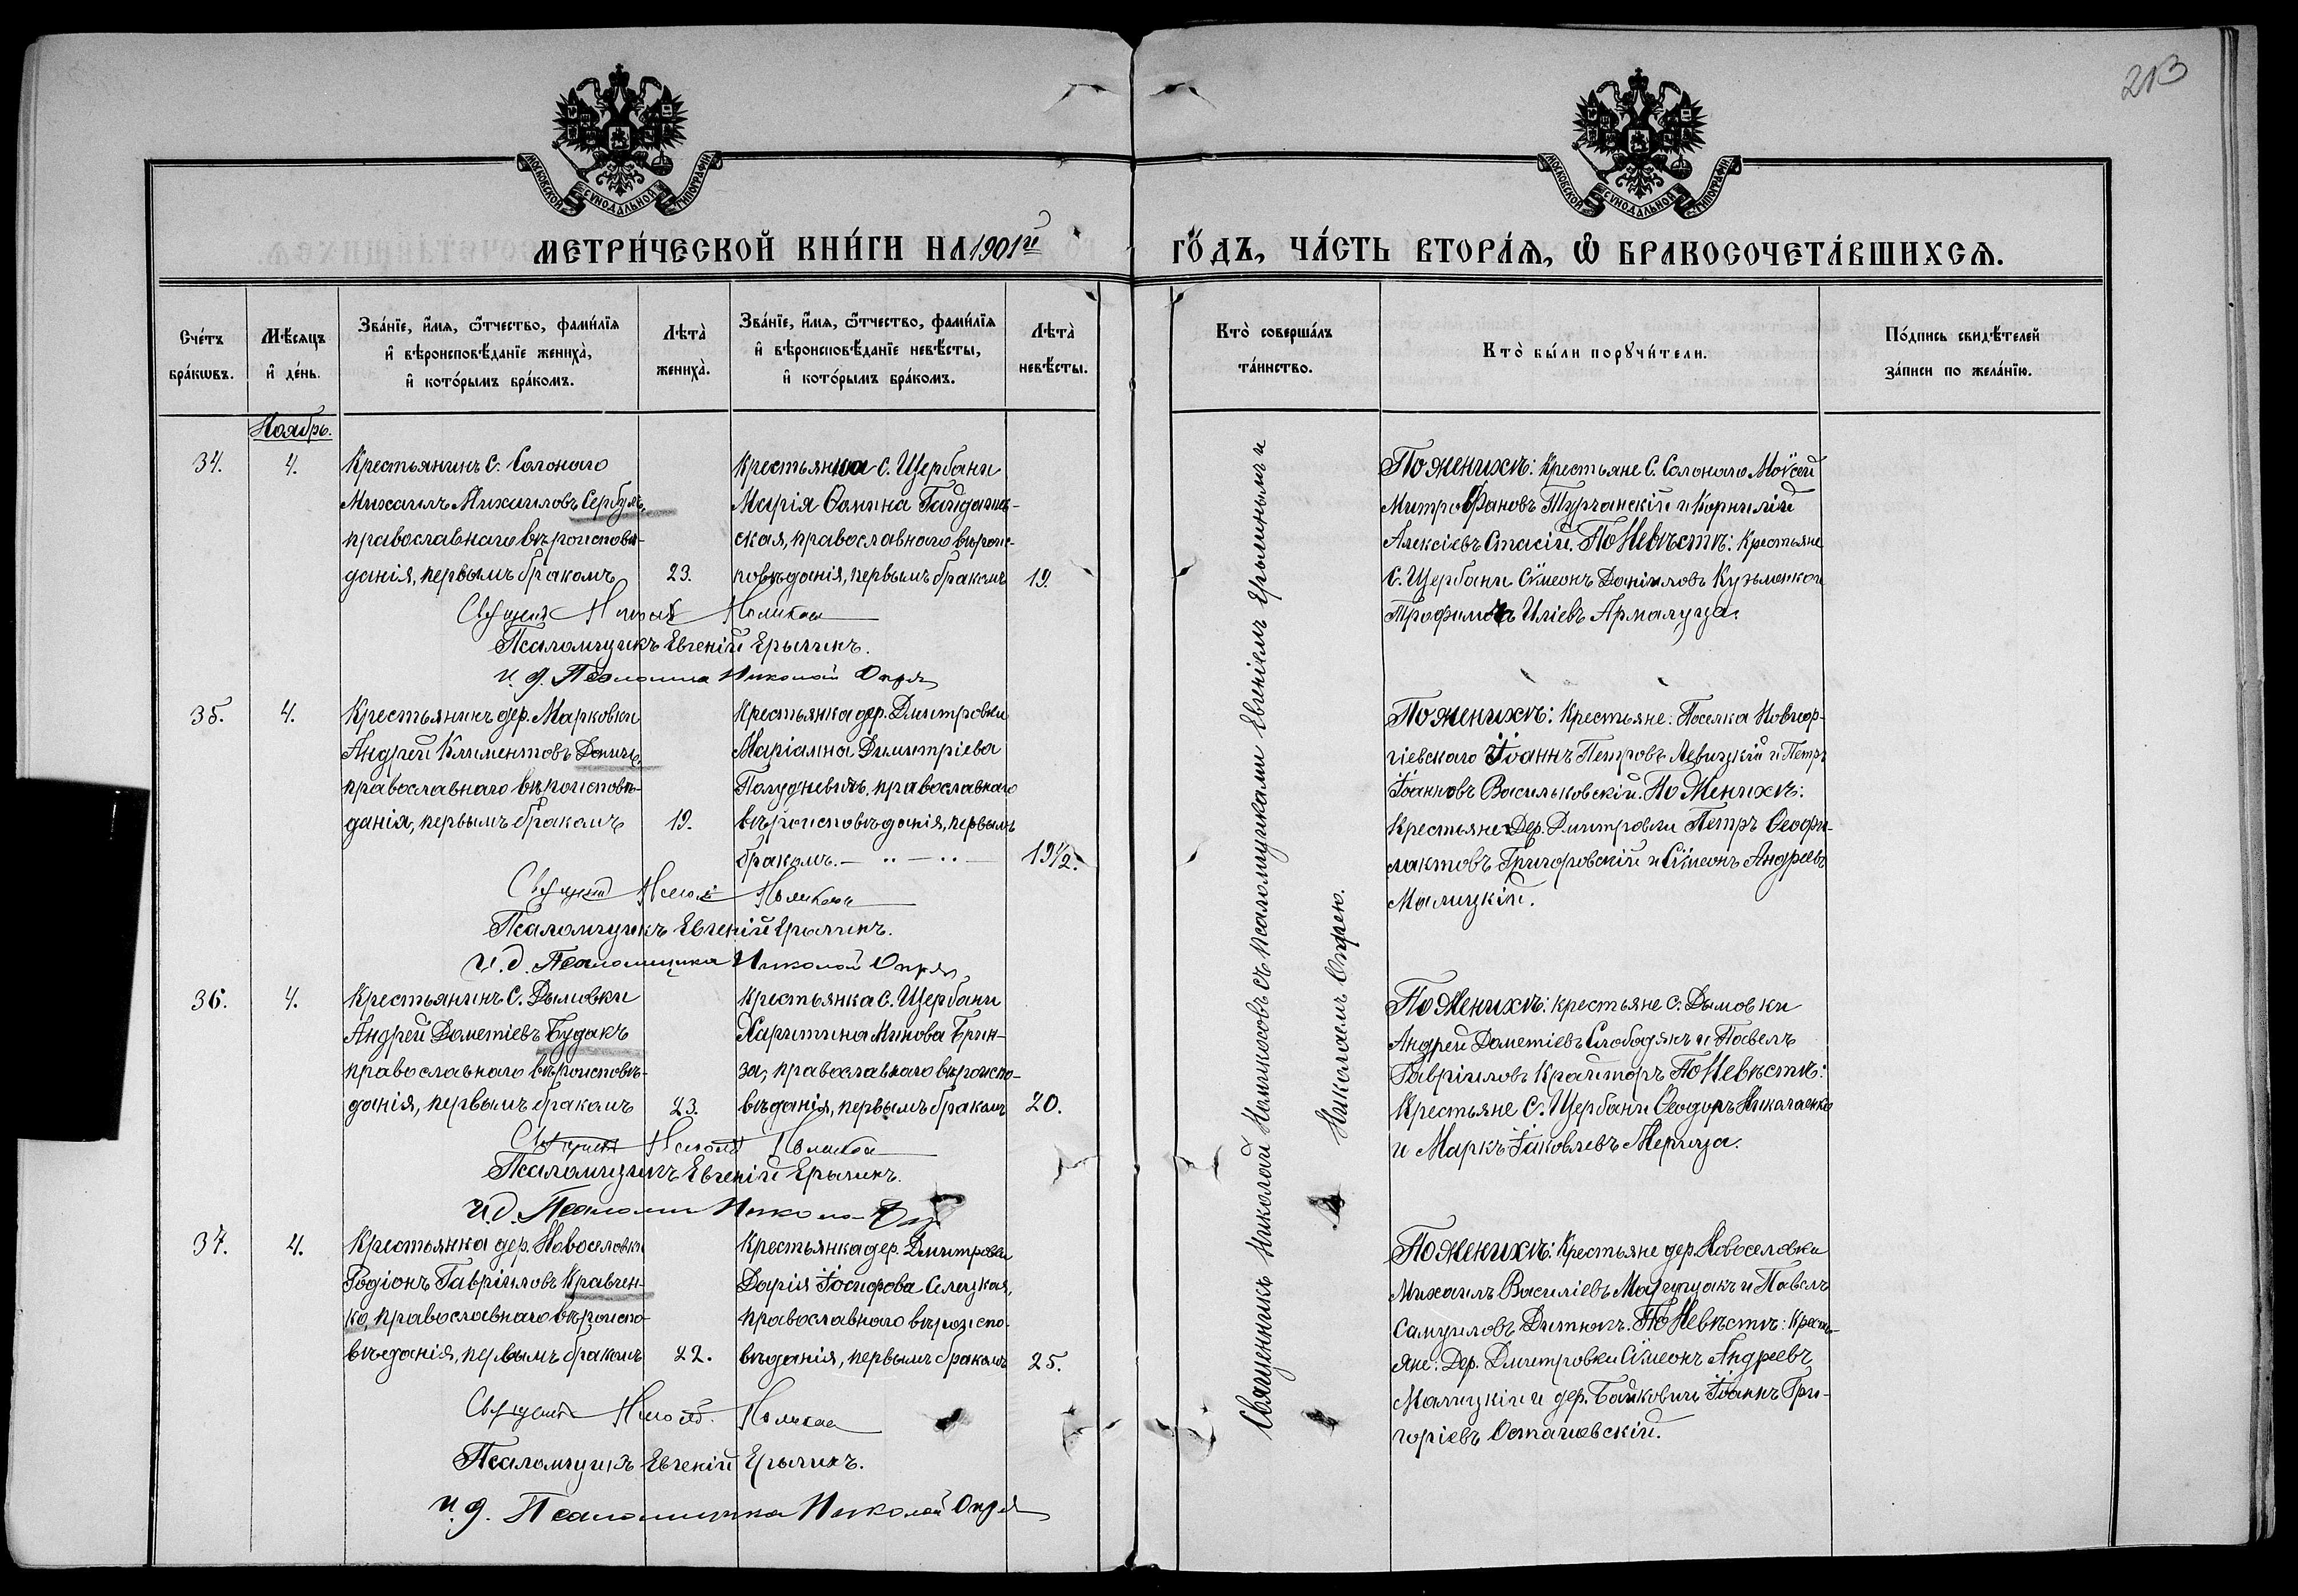 213
МОСКОВСКОЙ СѴНОДАЛЬНОЙ ТИПОГРАФІИ
МОСКОВСКОЙ СѴНОДАЛЬНОЙ ТИПОГРАФІИ
МЕТРИ́ЧЕСКОЙ КНИ́ГИ НА 1901й
ГО́ДЪ, ЧА́СТЬ ВТОРА́Ѧ, Ѽ БРАКОСОЧЕТА́ВШИХСѦ.
Сче́тъ
бра́кѡвъ.
Мѣ́сяцъ
и҆ де́нь.
Зва́нїе, и҆́мя, ѻ҆́тчество, фами́лїя
и҆ вѣроисповѣ́данїе жениха̀,
и҆ кото́рымъ бра́комъ.
Лѣта̀
жениха̀.
Зва́нїе, и҆́мя, ѻ҆́тчество, фами́лїя
и҆ вѣроисповѣ́данїе невѣ́сты,
и҆ кото́рымъ бра́комъ.
Лѣта̀
невѣ́сты.
Кто̀ соверша́лъ
та́инство.
Кто̀ бы́ли порꙋчи́тели.
По́дпись свидѣ́телей
за́писи по жела́нїю.
Ноябрь.
34.
4.
Крестьянинъ с. Солонаго
Михаилъ Михаиловъ Сербулъ,
православнаго вѣроисповѣ-
данія, первымъ бракомъ
23.
Крестьянка с. Щербани
Марія Ѳомина Гайдачин-
ская, православнаго вѣроис-
повѣданія, первымъ бракомъ
19.
По женихѣ: Крестьяне с. Солонаго Моѵсей
Митрофановъ Турчанскій и Корнилій
Алексіевъ Стасій. По Невѣстѣ: Крестьяне
с. Щербани Сѵмеонъ Даніиловъ Кузьменко и
Трофимъ Иліевъ Армалуца.
Священникъ
Псаломщикъ Евгеній Ерылинъ.
и. д. Псаломщика Николай Опря
35.
4.
Крестьянинъ дер. Марковки
Андрей Климентовъ Доничъ,
православнаго вѣроисповѣ-
данія, первымъ бракомъ
19.
Крестьянка дер. Дмитровки
Маріамна Димитріева
Полудневичъ, православнаго
вѣроисповѣданія, первымъ
бракомъ.
19½.
По женихѣ: Крестьяне: Поселка Новгеор-
гіевскаго Іоаннъ Петровъ Левицкій и Петръ
Іоанновъ Васильковскій. По Женихѣ:
Крестьяне: Дер. Дмитровки Петръ Ѳеофи-
лактовъ Григоровскій и Сѵмеонъ Андреевъ
Малицкій.
Священникъ
Псаломщикъ Евгеній Ерылинъ.
И. д. Псаломщика Николай Опря
36.
4.
Крестьянинъ с. Дымовки
Андрей Дометіевъ Будакъ
православнаго вѣроисповѣ-
данія, первымъ бракомъ
23.
Крестьянка с. Щербани
Харитина Минова Брин-
за, православнаго вѣроиспо-
вѣданія, первымъ бракомъ
20.
По Женихѣ: крестьяне с. Дымовки
Андрей Дометіевъ Слободянъ и Павелъ
Гавріиловъ Крайторъ По Невѣстѣ:
Крестьяне с. Щербани Ѳеодоръ Николаенко
и Маркъ Іаковлевъ Мерица.
Священникъ
Псаломщикъ Евгеній Ерылинъ.
И. д.
37.
4.
Крестьянка дер. Новоселовки
Родіонъ Гавріиловъ Кравчен-
ко, православнаго вѣроиспо-
вѣданія, первымъ бракомъ
22.
Крестьянка дер. Дмитровки
Дарія Іосифова Селецкая,
православнаго вѣроиспо-
вѣданія, первымъ бракомъ
25.
По женихѣ: Крестьяне дер. Новоселовки
Михаилъ Василіевъ и Павелъ
Самуиловъ Дитюкъ. По Невѣстѣ: Кресть-
яне: Дер. Дмитровки Сѵмеонъ Андреевъ
Малицкій и дер. Байковичи Іоаннъ Гри-
горіевъ Осташевскій.
Священникъ
Псаломщикъ Евгеній Ерылинъ.
и. д. Псаломщика Николай Опря
Священникъ Николай съ псаломщиками Евгеніемъ Ерылинымъ и
Николаемъ Опрею.